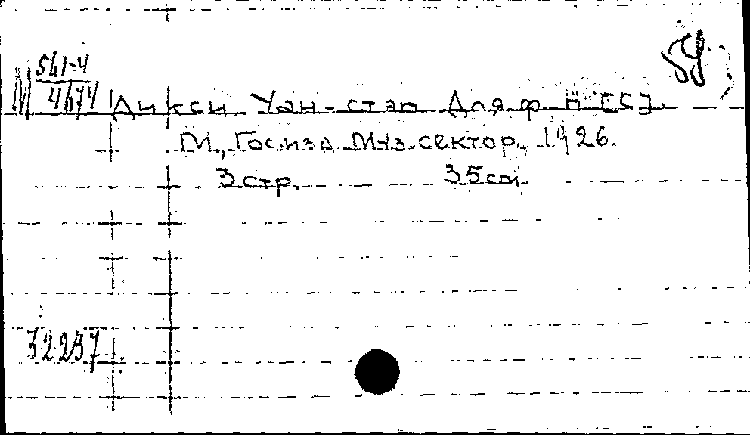 59
М 561-4
4674
Дикси Уан-степ Для ф-п [б]
М., Госизд Муз.сектор, 1926.
3 стр. 35 см.
32237